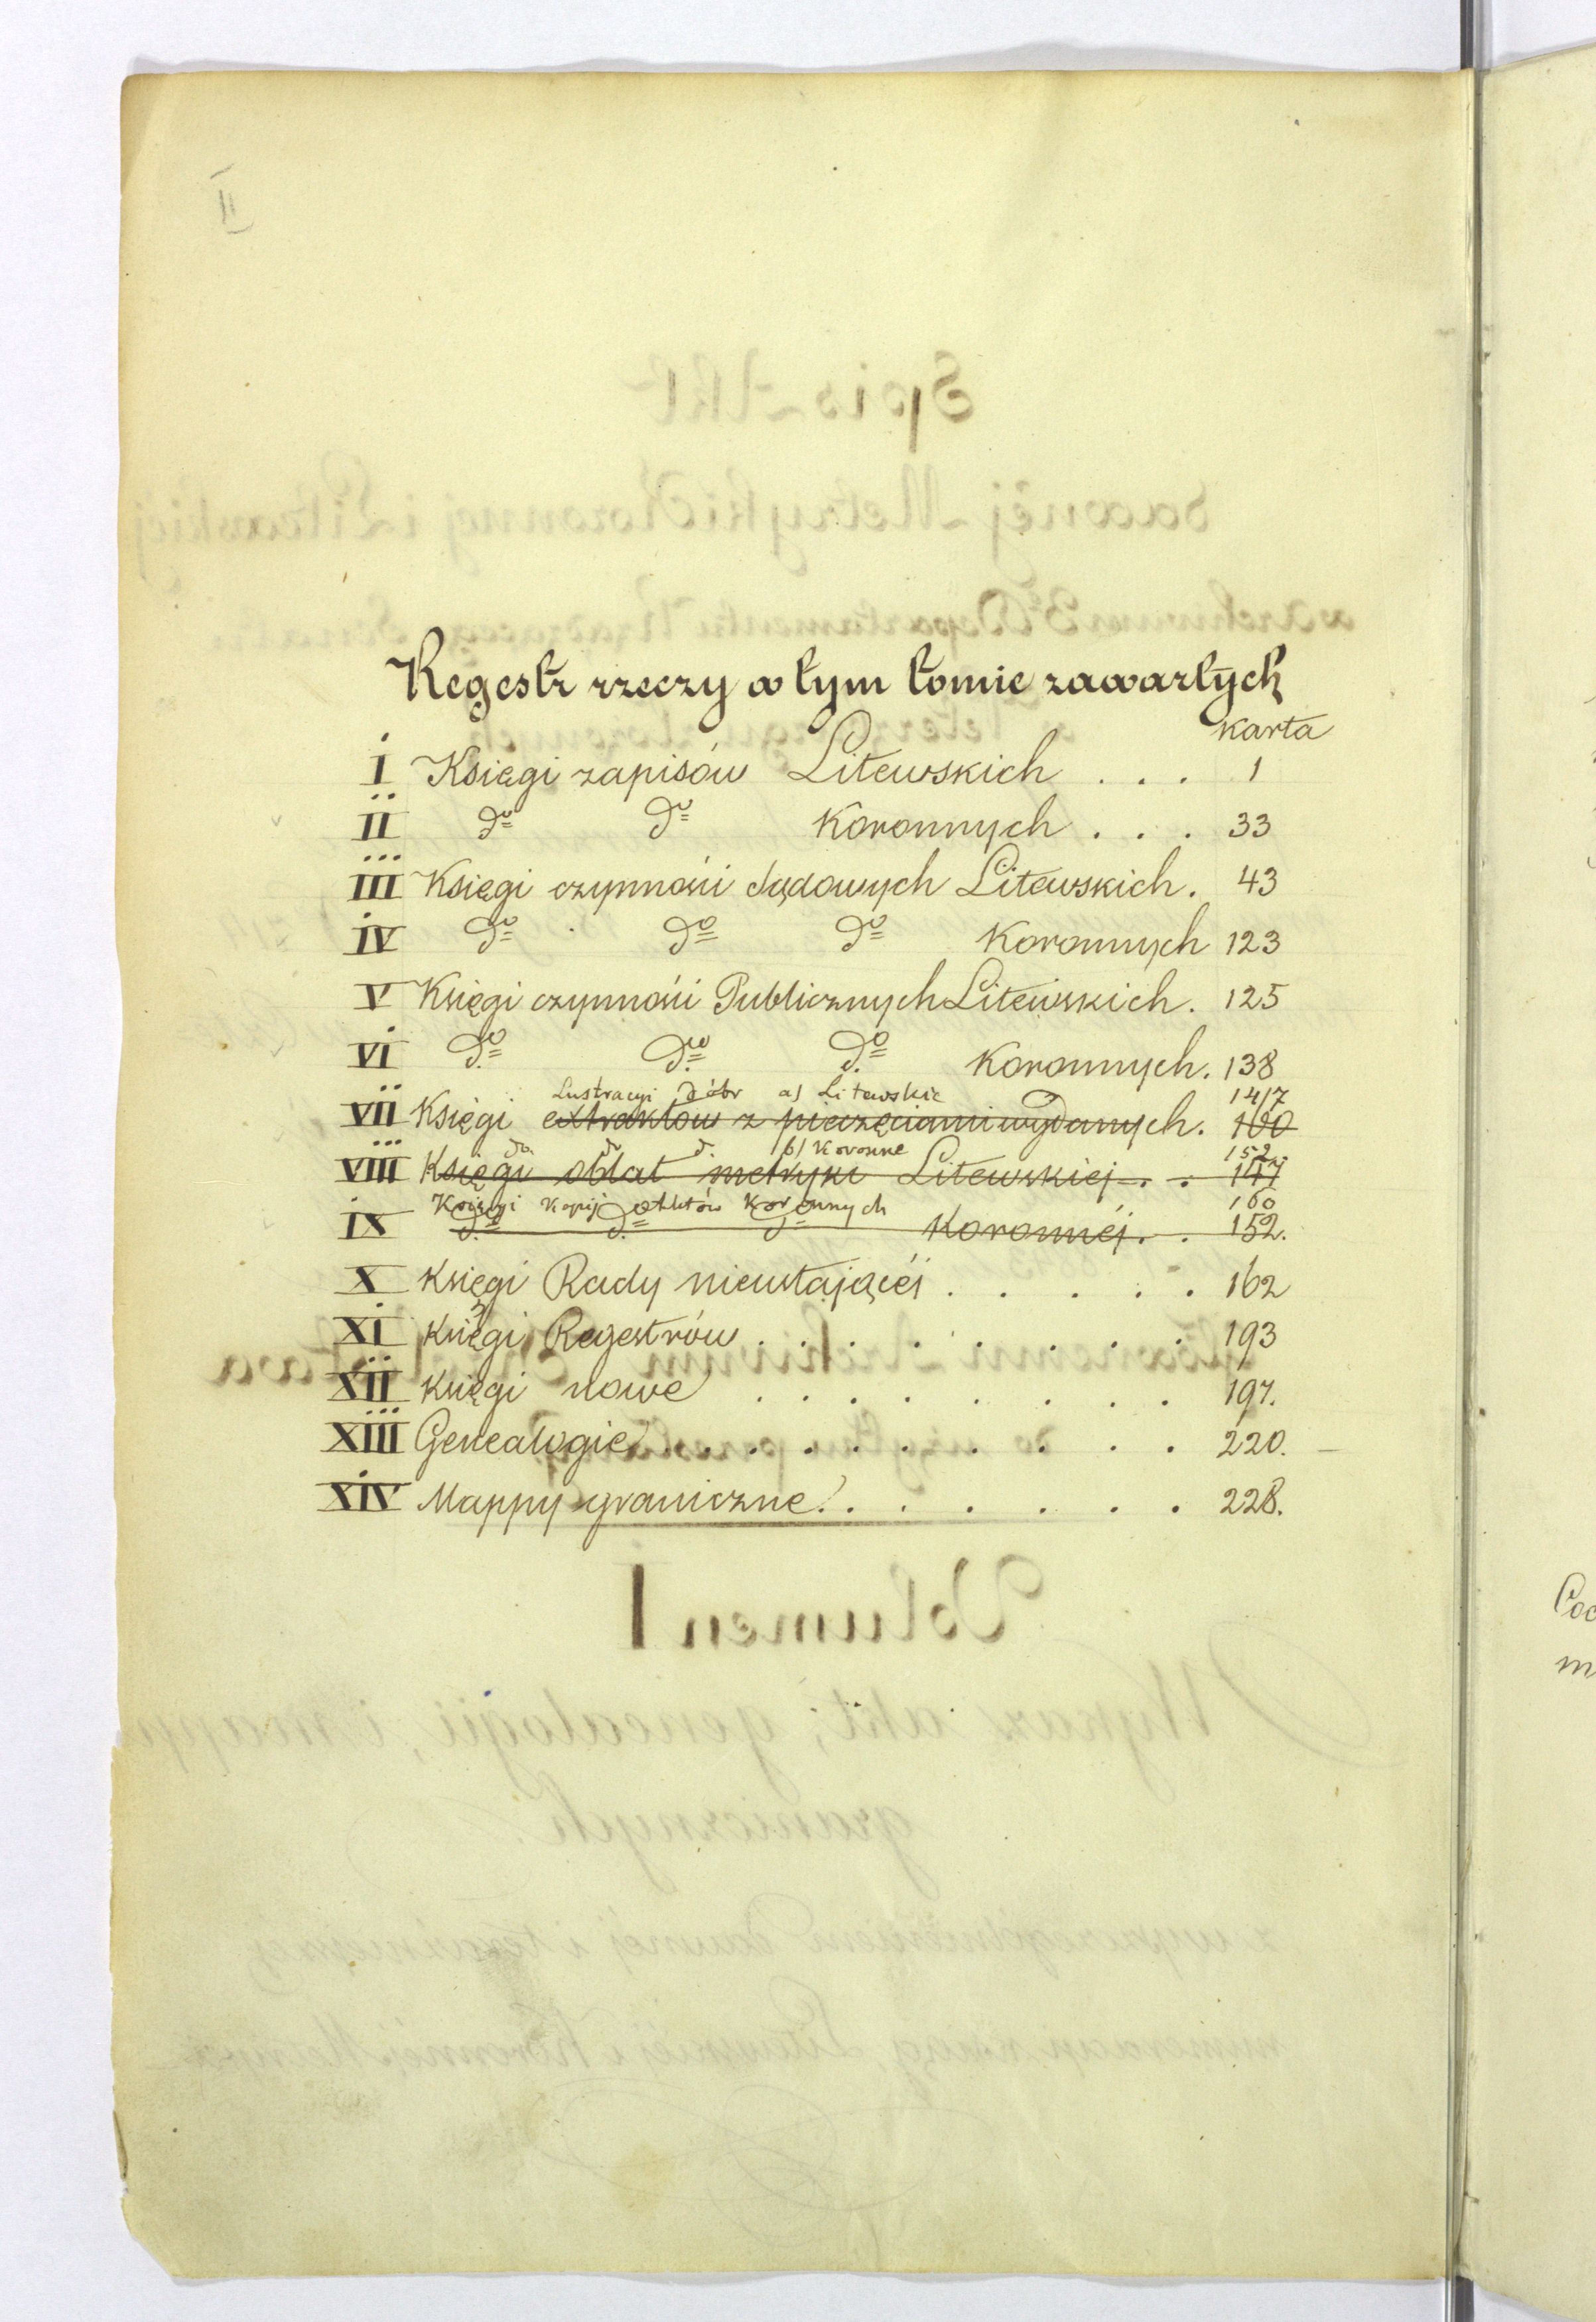 II
Regestr rzeczy w tym tomie zawartych
karta
I Księgi zapisów Litewskich . . . 1
II do do Koronnych . . . 33
III Księgi czynności Sądowych Litewskich. 43
IV do do do Koronnych 123
V Księgi czynności Publicznych Litewskich. 125
VI do do do Koronnych. 138
Lustracyi Dóbr a) Litewskie 147
VII Księgi extraktow z pieczęciami wydanych. 160
do do d. b) Koronne 152.
VIII Księgi oblat metryki Litewskiej . . 147
Księgi Kopij aktów Koronnych 160
IX do do do Koronnéj . . 152.
X Księgi Rady nieustającéj . . . . . 162
XI Księgi Regestrów . . . . . . . 193
XII Księgi nowe . . . . . . . 197.
XIII Genealogie . . . . . . . . 220.
XIV Mappy graniczne . . . . . . 228.